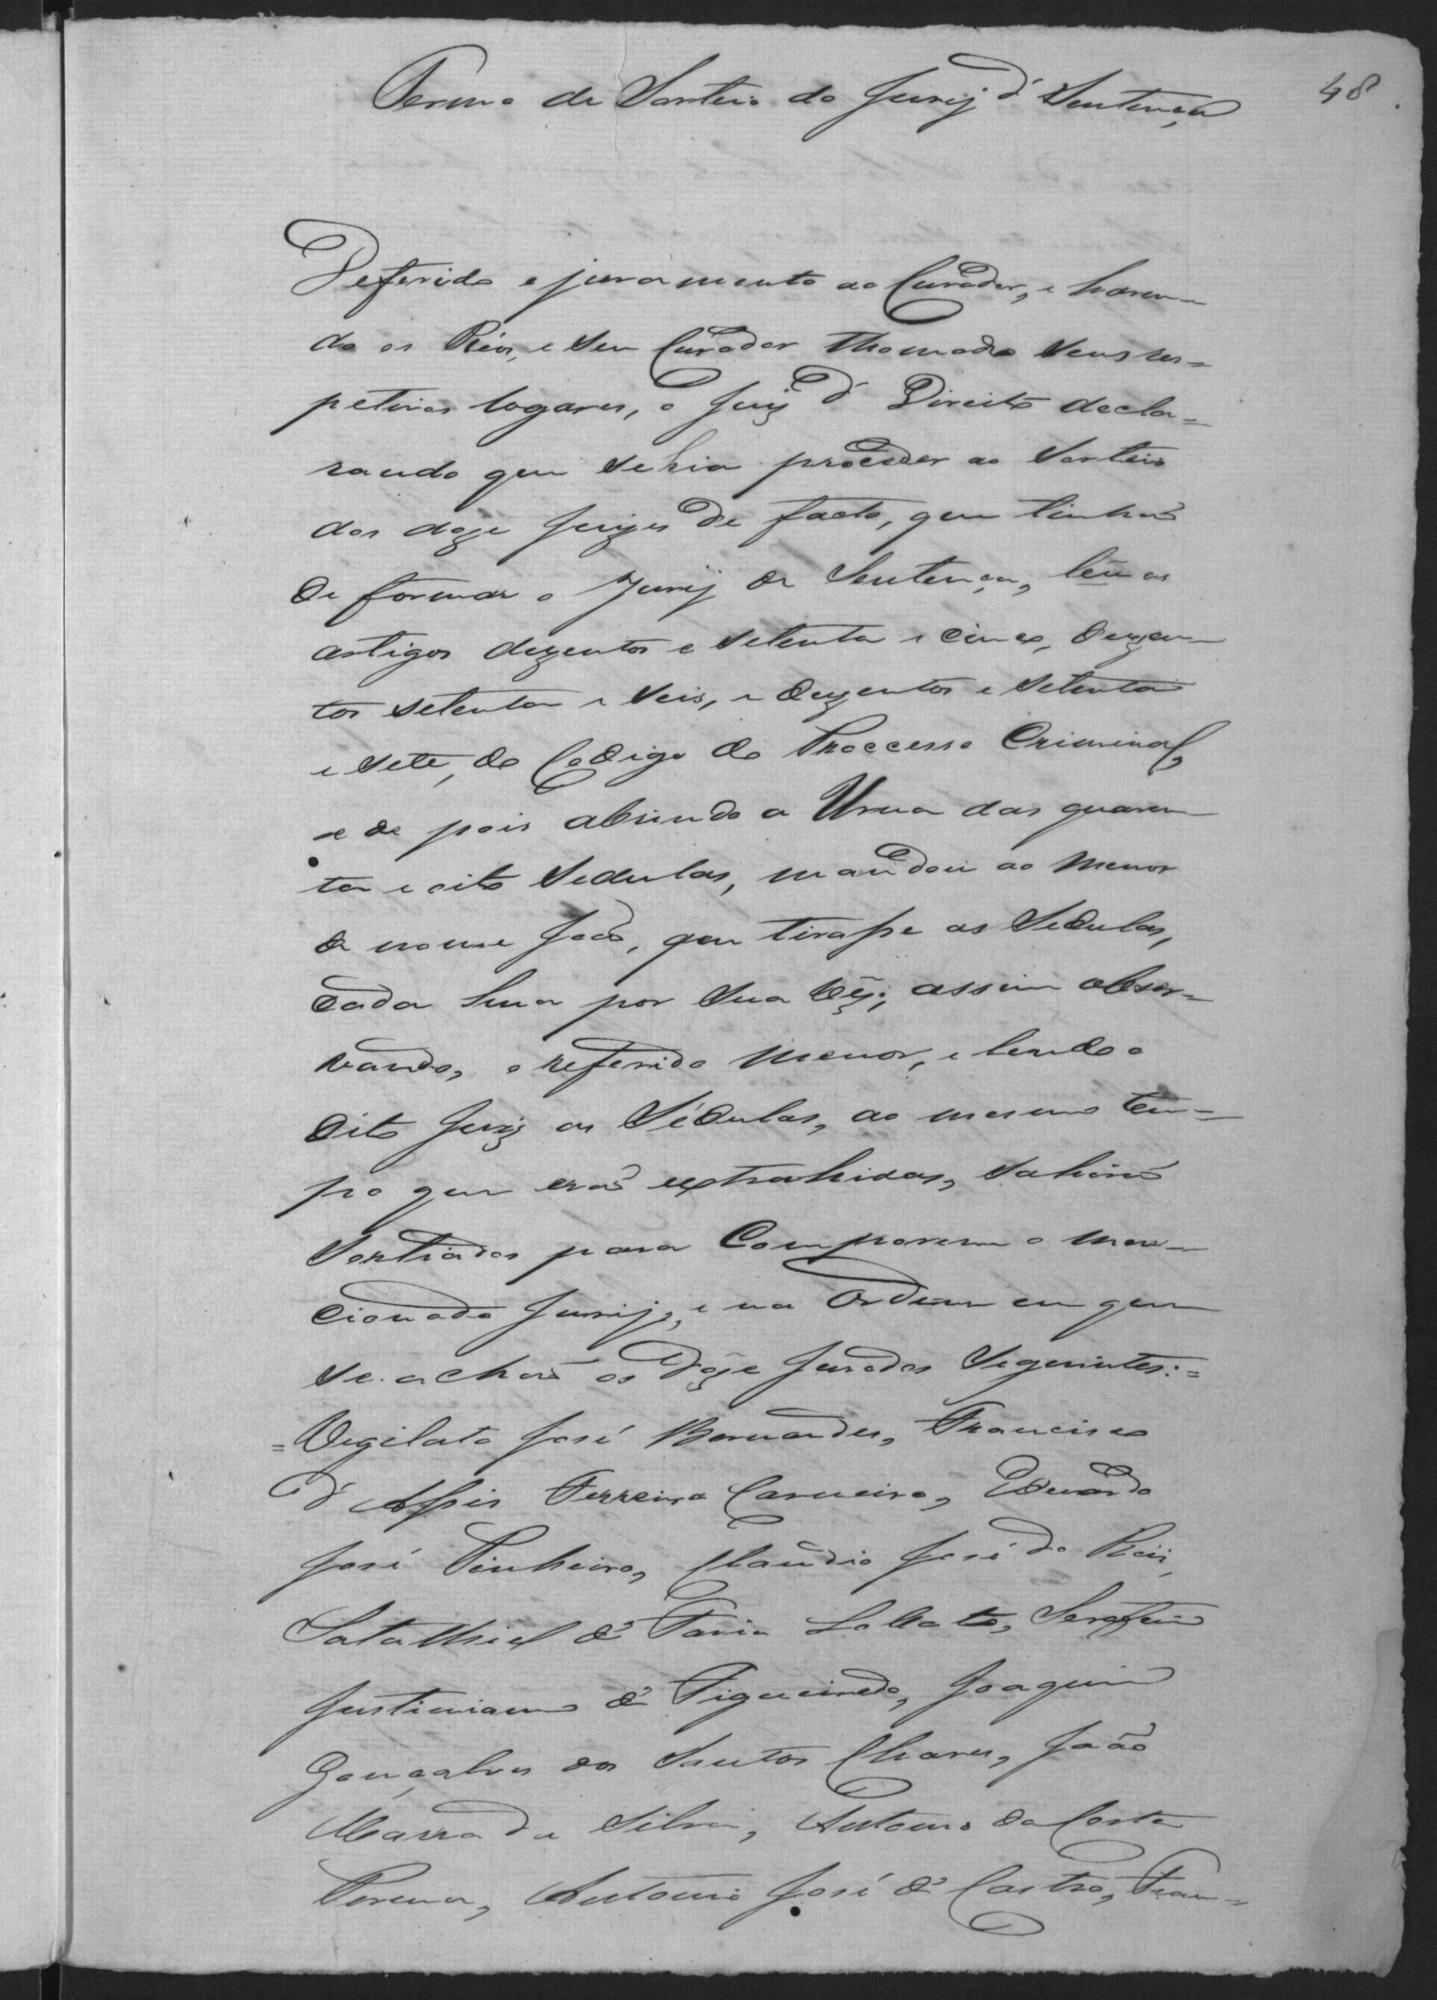 48
Termo de Sorteio do Jurij d' Sentença
Deferido o juramento ao Curador, e haven-
do os Réos, e seu Curador thomado seus res=
petivos logares, o Juiz d' Direito decla=
rando que se hia proceder ao sorteio
dos doze Juizes de facto, que tinhaõ
de formar o Jurij de Sentença, leu os
artigos dezentos e setenta e cinco, dezen-
tos setenta e seis, e dezentos e setenta
e sete, do Codigo do Proccesso Criminal,
e de pois abrindo a Urna das quaren-
ta e oito sedulas, mandou ao menor
de nome Joaõ, que tirasse as Sedulas,
cada huma por sua vez; assim obser=
vando, o referido menor, e lendo o
dito Juiz as Sédulas, ao mesmo tem=
po que eraõ extrahidas, sahiraõ
Sortiados para Comporem o men-
cionado Jurij, e na Ordem em que
se achaõ os doze Jurados Seguintes:=
=Vegilato José Bernandes, Francisco
d' Assis Ferreira Carneiro, Eduardo
José Pinheiro, Claudio José do Reis,
Salathiel d' Faria Lobato, Serafim
Justiniano d' Figueiredo, Joaquim
Gonçalves dos Santos Chaves, Joaõ
Marra da Silva, Antonio da Costa
Pereira, Antonio José d' Castro, Fran=